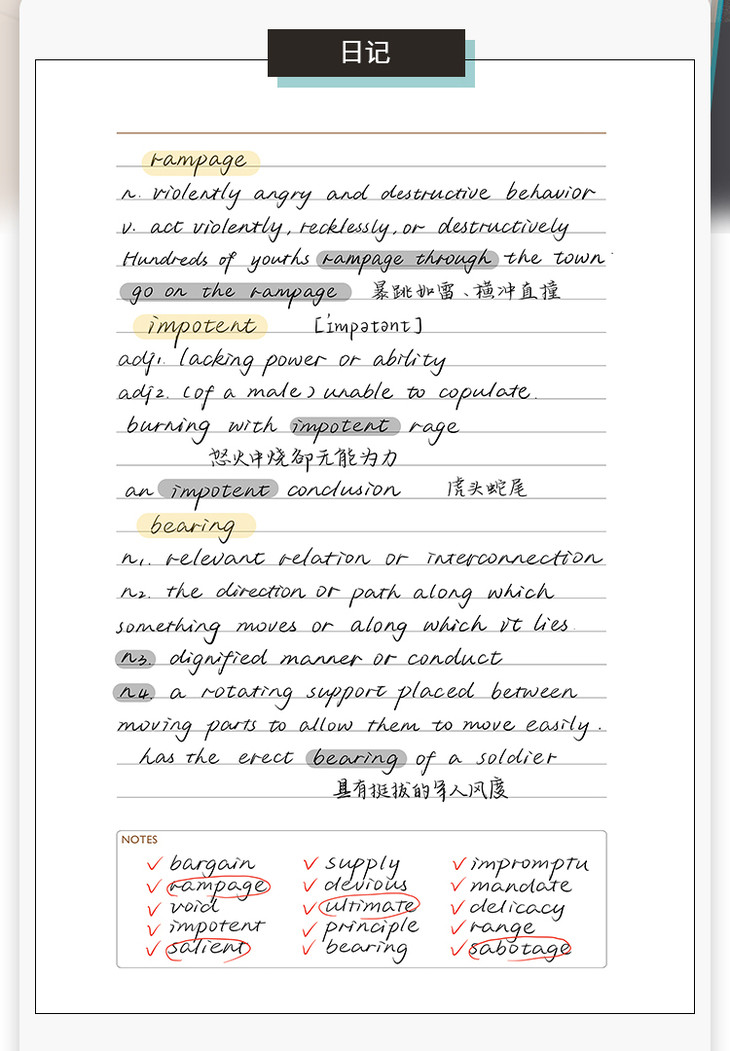 日记
rampage
n. violently angry and destructive behavior
v. act violently, recklessly, or destructively
Hundreds of youths rampage through the town
go on the rampage 暴跳如雷、横冲直撞
impotent [ˈɪmpətənt]
adj1. lacking power or ability
adj2. (of a male) unable to copulate.
burning with impotent rage
怒火中烧却无能为力
an impotent conclusion 虎头蛇尾
bearing
n1. relevant relation or interconnection
n2. the direction or path along which
something moves or along which it lies
n3. dignified manner or conduct
n4. a rotating support placed between
moving parts to allow them to move easily.
has the erect bearing of a soldier
具有挺拔的军人风度
NOTES
✓ bargain ✓ supply ✓ impromptu
✓ rampage ✓ devious ✓ mandate
✓ void ✓ ultimate ✓ delicacy
✓ impotent ✓ principle ✓ range
✓ salient ✓ bearing ✓ sabotage